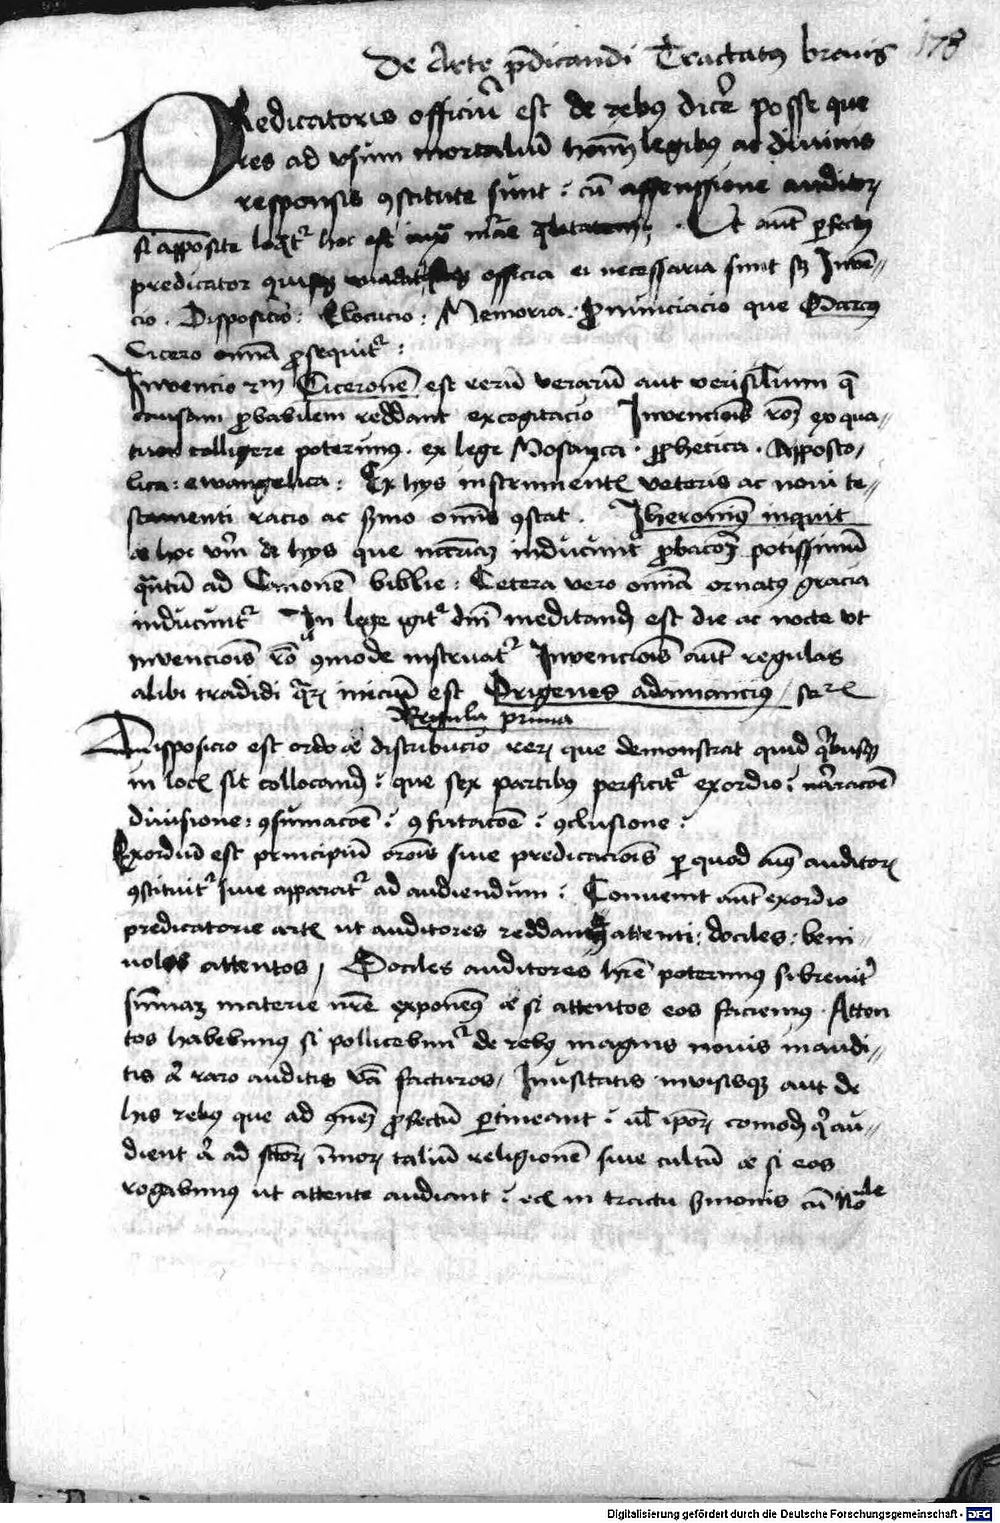 De Arte p̄dicandi Tractatus brevis 178
PRedicatoris officiū est de rebus dicere posse que
res ad vsum mortaliū hoīm legibus ac divinis
responsis ꝯstitute sunt : cū assensione auditorꝝ
si apposite loqͣtur hoc est iuxta Ut aut̄ perfectus
predicator officia ei necessaria sunt sꝫ Inven-
cio . Disposicio : Elocucio : Memoria . Pronunciacio que Marcus
Cicero omnia prosequit᷑ :
Invencio scdm Ciceronē est rerū verarū aut verisilium q̄
causam probabilem reddant excogitacio Invencionis ex qua-
tuor colligere poterimus . ex lege Mosayca . prophetica . Apposto-
lica : ewangelica : Ex hys instrumentis veteris ac novi te-
stamenti racio ac sermo omnis ꝯstat . Iheronimus inquit
hoc de hys que inducunt᷑ potissimū
quantū ad Canonē biblie : Cetera vero omnia ornatus gracia
inducunt᷑ In lege igit᷑ dn̄i meditandū est die ac nocte vt
invencionis rō ꝯmode instruat᷑ Invencionis aut̄ regulas
alibi tradidi quarꝫ iniciū est Origenes adamancius
Regula prima
Disposicio est ordo et distribucio rerꝫ que demonstrat quid quibus
in locis sit collocandū : que sex partibus perficit᷑ exordio : narracōe
divisione : ꝯfirmacōe : ꝯfutacōe : ꝯclusione :
Exordiū est principiū orōis sive predicacionis per quod aīus auditorꝫ
ꝯstituit᷑ sive apparat᷑ ad audiendum : Convenit aut̄ exordio
predicatorie artis ut auditores reddant᷑ attenti : dociles : beni-
volos attentos / Dociles auditores habere poterimus si brevit̄
summaꝫ materie nr̄e exponemus et si attentos eos faciemus . Atten
tos habebimus si pollicebimur de rebus magnis novis inaudi-
tis aut raro auditis verba facturos / Inusitatis invisisque aut de
his rebus que ad ꝯmunē profectū pertineant : vel ipsorꝫ comodū qui au-
dient aut ad talium religionē sive cultū et si eos
rogabimus ut attente audiant : in tractu sermonis cū
Digitalisierung gefördert durch die Deutsche Forschungsgemeinschaft - DFG